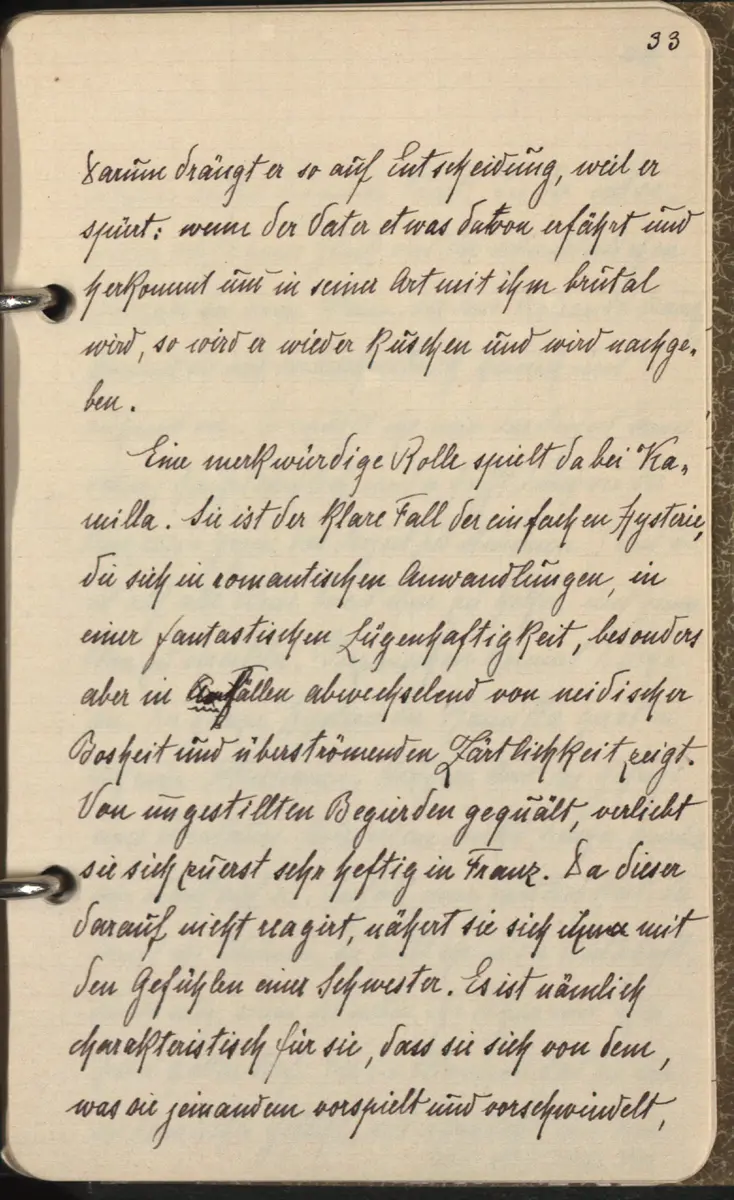 33
Darum drängt er so auf Entscheidung, weil er
spürt: wenn der Vater etwas davon erfährt und
herkommt und in seiner Art mit ihm brutal
wird, so wird er wieder kuschen und wird nachge-
ben.
Eine merkwürdige Rolle spielt dabei Ka-
milla. Sie ist der klare Fall der einfachen Hysterie,
die sich in romantischen Anwandlungen, in
einer fantastischen Lügenhaftigkeit, besonders
aber in Anfällen abwechselnd von neidischer
Bosheit und überströmenden Zärtlichkeit zeigt.
Von ungestillten Begierden gequält, verliebt
sie sich zuerst sehr heftig in Franz. Da dieser
darauf nicht reagirt, nähert sie sich ihm mit
den Gefühlen einer Schwester. Es ist nämlich
charakteristisch für sie, dass sie sich von dem,
was sie jemandem vorspielt und vorschwindelt,